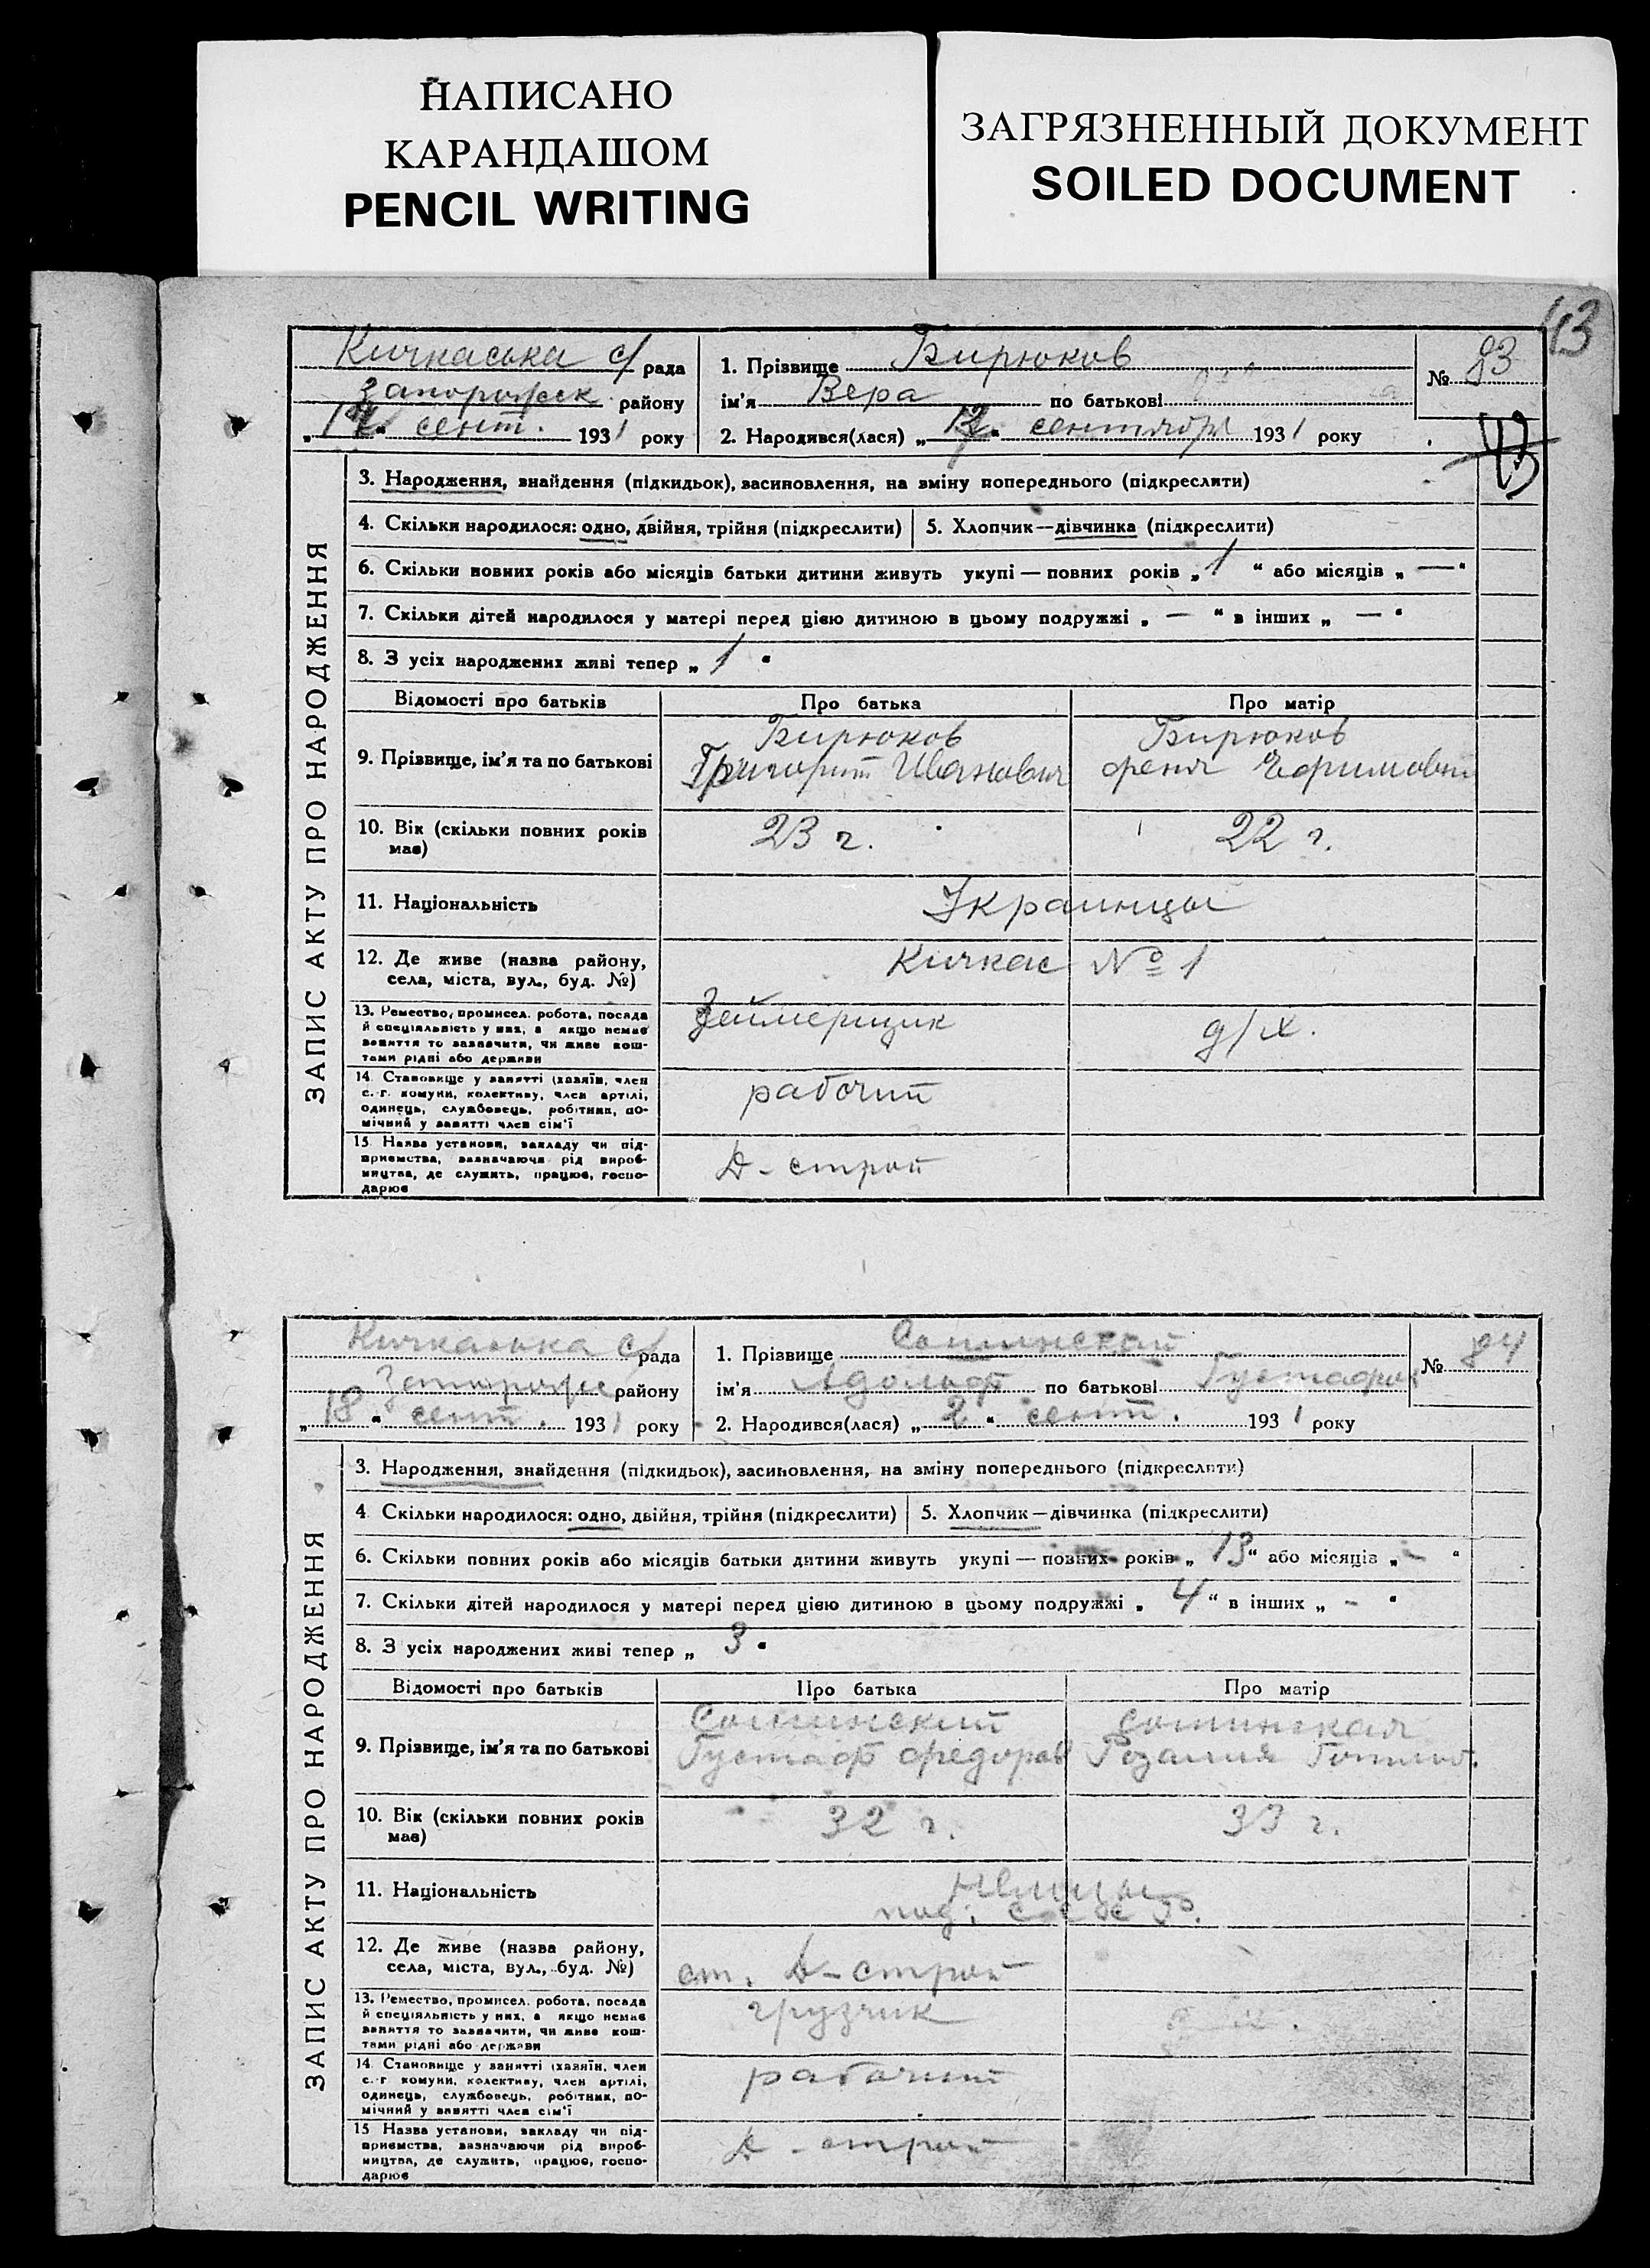 НАПИСАНО
КАРАНДАШОМ
PENCIL WRITING
ЗАГРЯЗНЕННЫЙ ДОКУМЕНТ
SOILED DOCUMENT
43
Кичкаська с/ рада
Запорожск. району
"17" сент. 1931 року
1. Прізвище Бирюков
ім'я Вера по батькові
2. Народився(лася) " " сентября 1931 року
№ 83
43
ЗАПИС АКТУ ПРО НАРОДЖЕННЯ
3. Народження, знайдення (підкидьок), засиновлення, на зміну попереднього (підкреслити)
4. Скільки народилося: одно, двійня, трійня (підкреслити)
5. Хлопчик—дівчинка (підкреслити)
6. Скільки повних років або місяців батьки дитини живуть укупі — повних років „ 1 “ або місяців „ — “
7. Скільки дітей народилося у матері перед цією дитиною в цьому подружжі „ — “ в інших „ — “
8. З усіх народжених живі тепер „ 1 “
Відомості про батьків Про батька Про матір
9. Прізвище, ім'я та по батькові
Бирюков
Григорий Иванович
Бирюков
Феня Ефимовн
10. Вік (скільки повних років має)
23 г. 22 г.
11. Національність Украинцы
12. Де живе (назва району,
села, міста, вул., буд. №)
Кичкас № 1
13. Ремество, промисел. робота, посада
й спеціяльність у них, а якщо немає
заняття то зазначити, чи живе кош-
тами рідні або держави
Зеймерщик д/х.
14. Становище у занятті (хазяїн, член
с.-г. комуни, колективу, член артілі,
одинець, службовець, робітник, по-
мічний у занятті член сім'ї
рабочий
15. Назва установи, закладу чи під-
приємства, зазначаючи рід вироб-
ництва, де служить, працює, госпо-
дарює
Д-строй
Кичкаська с/ рада
Запорожс району
"18" сент. 1931 року
1. Прізвище
ім'я Адольф по батькові Густафов
2. Народився(лася) „ 2 “ сент. 1931 року
№ 84
ЗАПИС АКТУ ПРО НАРОДЖЕННЯ
3. Народження, знайдення (підкидьок), засиновлення, на зміну попереднього (підкреслити)
4 Скільки народилося: одно, двійня, трійня (підкреслити)
5. Хлопчик—дівчинка (підкреслити)
6. Скільки повних років або місяців батьки дитини живуть укупі — повних років „ 13 “ або місяців „ - “
7. Скільки дітей народилося у матері перед цією дитиною в цьому подружжі „ 4 “ в інших „ - “
8. З усіх народжених живі тепер „ 3 “
Відомості про батьків Про батька Про матір
9. Прізвище, ім'я та по батькові
Густаф Федоров
Розалия Готлиб.
10. Вік (скільки повних років має)
32 г. 33 г.
11. Національність
Немцы
под. СССР.
12. Де живе (назва району,
села, міста, вул., буд. №)
ст. Д-строй
13. Ремество, промисел. робота, посада
й спеціяльність у них, а якщо немає
заняття то зазначити, чи живе кош-
тами рідні або держави
грузчик
14. Становище у занятті (хазяїн, член
с.-г комуни, колективу, член артілі,
одинець, службовець, робітник, по-
мічний у занятті член сім'ї
рабочий
15 Назва установи, закладу чи під-
приємства, зазначаючи рід вироб-
ництва, де служить, працює, госпо-
дарює
Д-строй